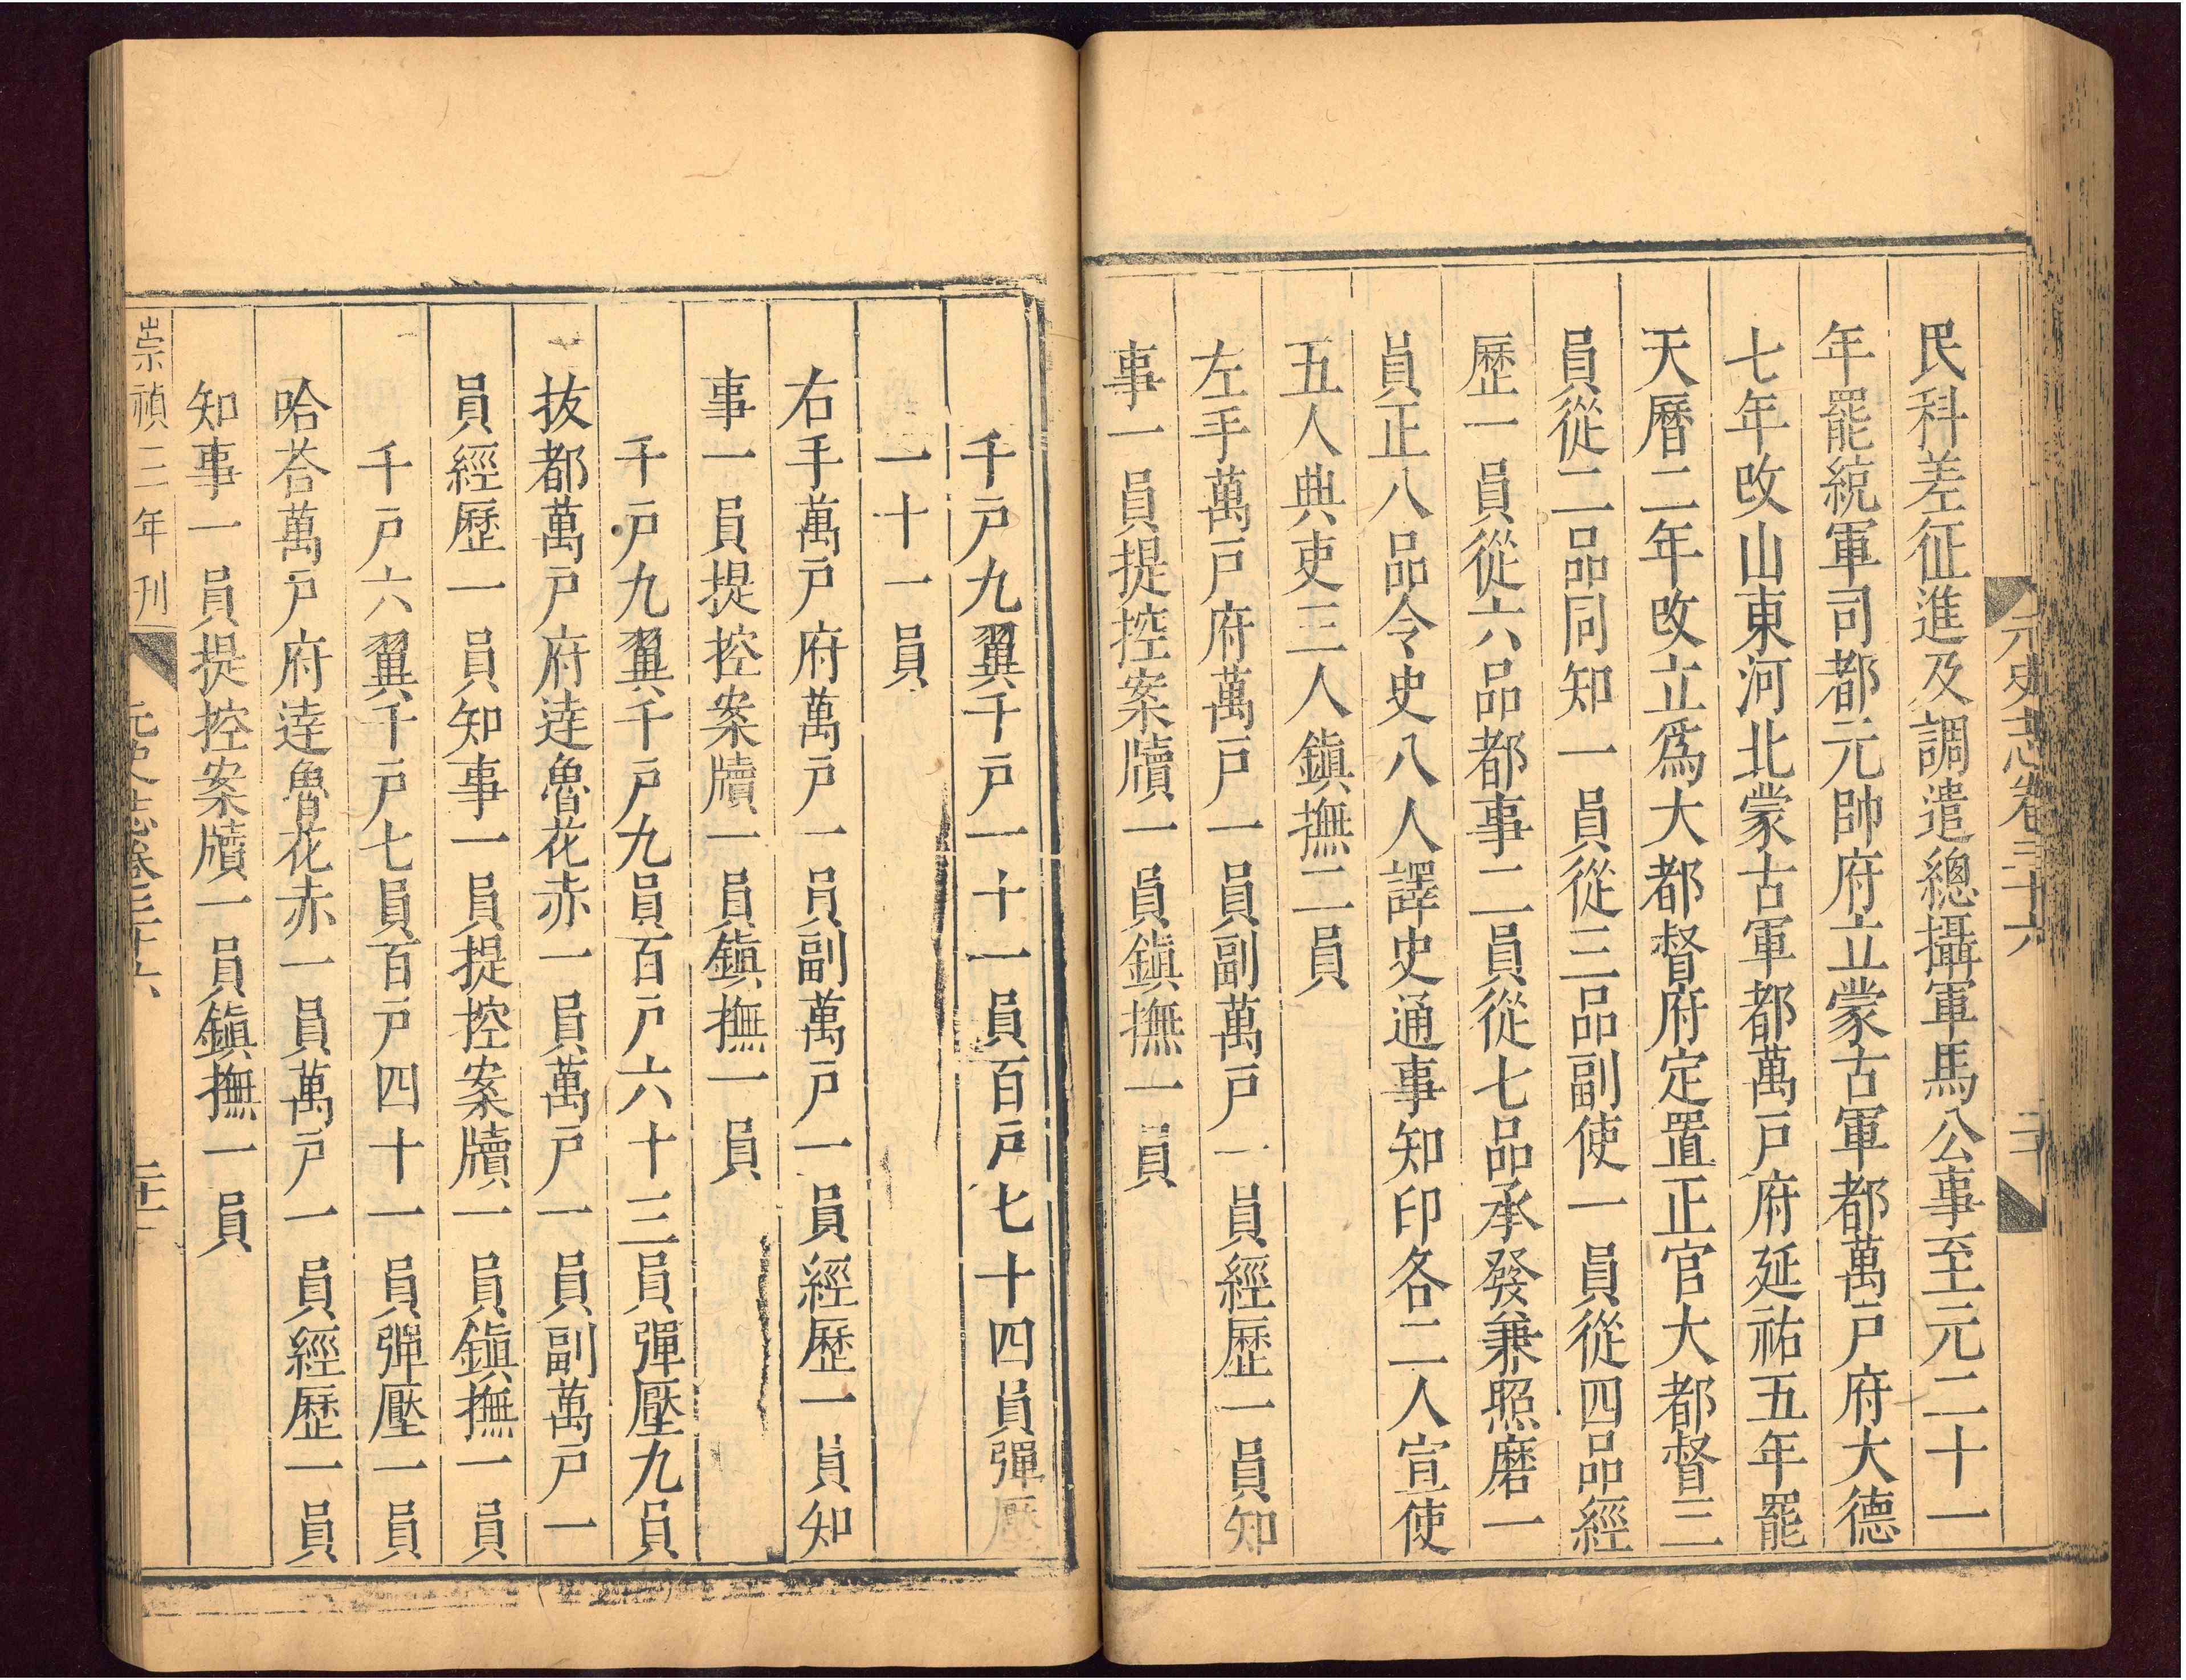 元史志卷三十六 二十
民科差征進及調遣總攝軍馬公事至元二十一
年罷統軍司都元帥府立蒙古軍都萬戸府大德
七年改山東河北蒙古軍都萬戸府延祐五年罷
天曆二年改立爲大都督府定置正官大都督三
員從二品同知一員從三品副使一員從四品經
歷一員從六品都事二員從七品承發兼照磨一
員正八品令史八人譯史通事知印各二人宣使
五人典吏三人鎮撫二員
左手萬戸府萬戸一員副萬戸一員經歷一員知
事一員提控案牘一員鎮撫一員
千戸九翼千戸一十一員百戸七十四員彈壓
一十一員
右手萬戸府萬戸一員副萬戸一員經歷一員知
事一員提控案牘一員鎮撫一員
千戸九翼千戸九員百戸六十三員彈壓九員
拔都萬戸府達魯花赤一員萬戸一員副萬戸一
員經歷一員知事一員提控案牘一員鎮撫一員
千戸六翼千戸七員百戸四十一員彈壓一員
哈荅萬戸府達魯花赤一員萬戸一員經歷一員
知事一員提控案牘一員鎮撫一員
崇禎三年刊 元史志卷三十六 二十一